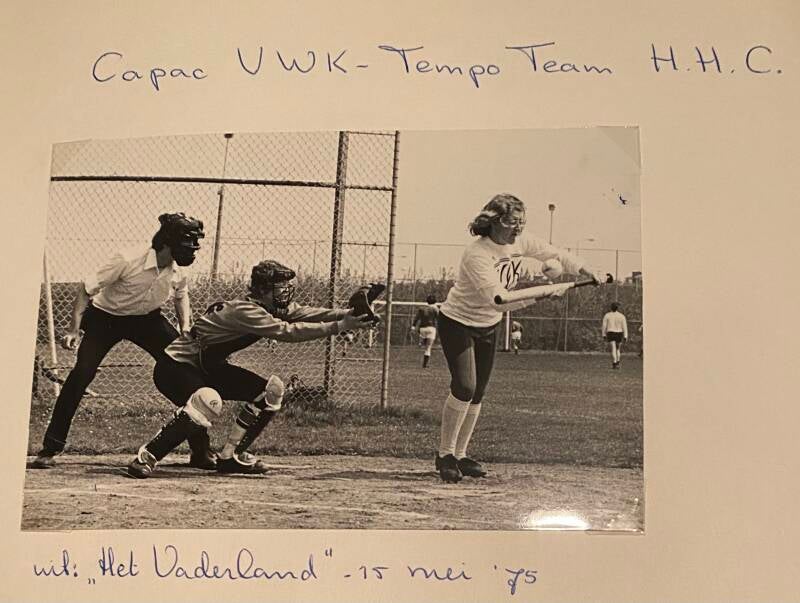 Capac VWK - Tempo Team H.H.C.
uit: „Het Vaderland" - 15 mei '75